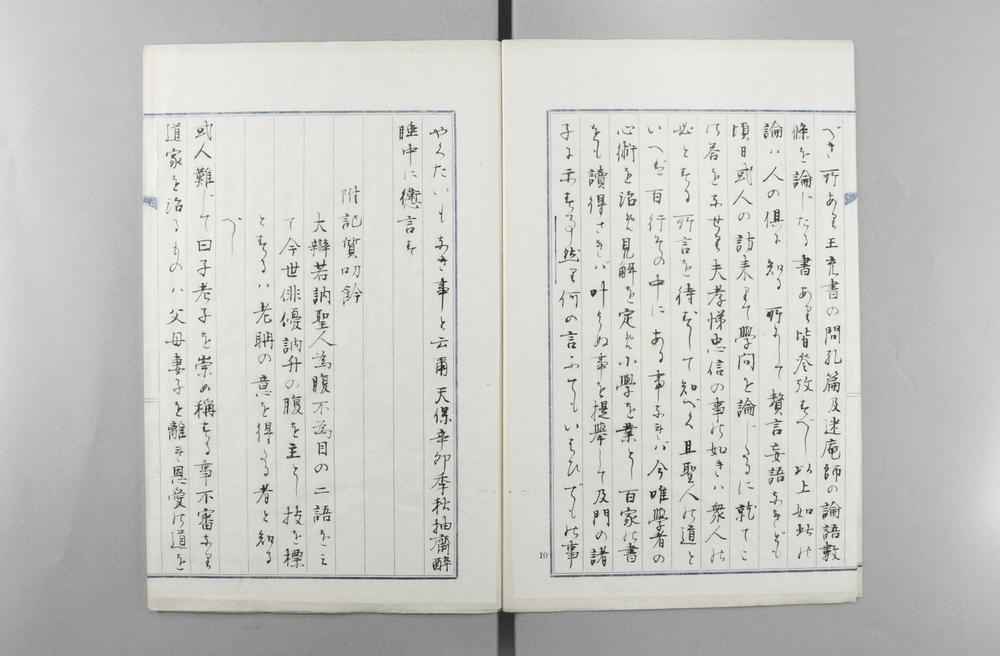 べき所あり王充書の問孔篇及迷庵師の論語数
條を論じたる書あり皆参攷すべし以上如此の
論は人の倶に知る所にして贅言妄語なれども
頃日或人の訪来りて學問を論じたるに就てこ
の答をなせり夫孝悌忠信の事の如きは衆人の
必とする所言を待ずして知べく且聖人の道と
いへば百行その中にある事なれば今唯學者の
心術を治め見解を定め小學を業とし百家の書
をも讀得ざれば叶はぬ事を提擧して及門の諸
子に示する而然り何の言ふてもいらひでもの事
10
やくたいもなき事と云爾天保辛卯季秋抽齋醉
睡中に囈言す
附記質叨齡
大辯若訥聖人為腹不為目の二語をみ
て今世俳優訥升の腹を主とし技を標
とするは老聃の意を得たる者と知る
べし
或人難じて曰子老子を崇め稱する事不審なり
道家を治るものは父母妻子を離れ恩愛の道を